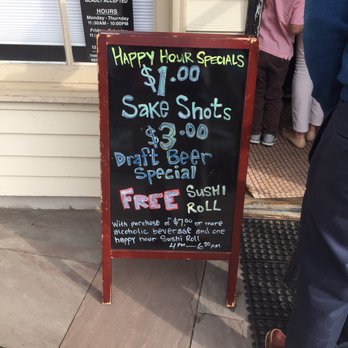 GLADLY ACCEPTED
HOURS
Monday - Thursday
11:30AM - 10:00PM
HAPPY HOUR SPECIALS
$1.00
Sake Shots
$3.00
Draft Beer
Special
FREE SUSHI
ROLL
With purchase of $7.00 or more
alcoholic beverage and one
happy hour Sushi Roll
4PM — 6:30PM